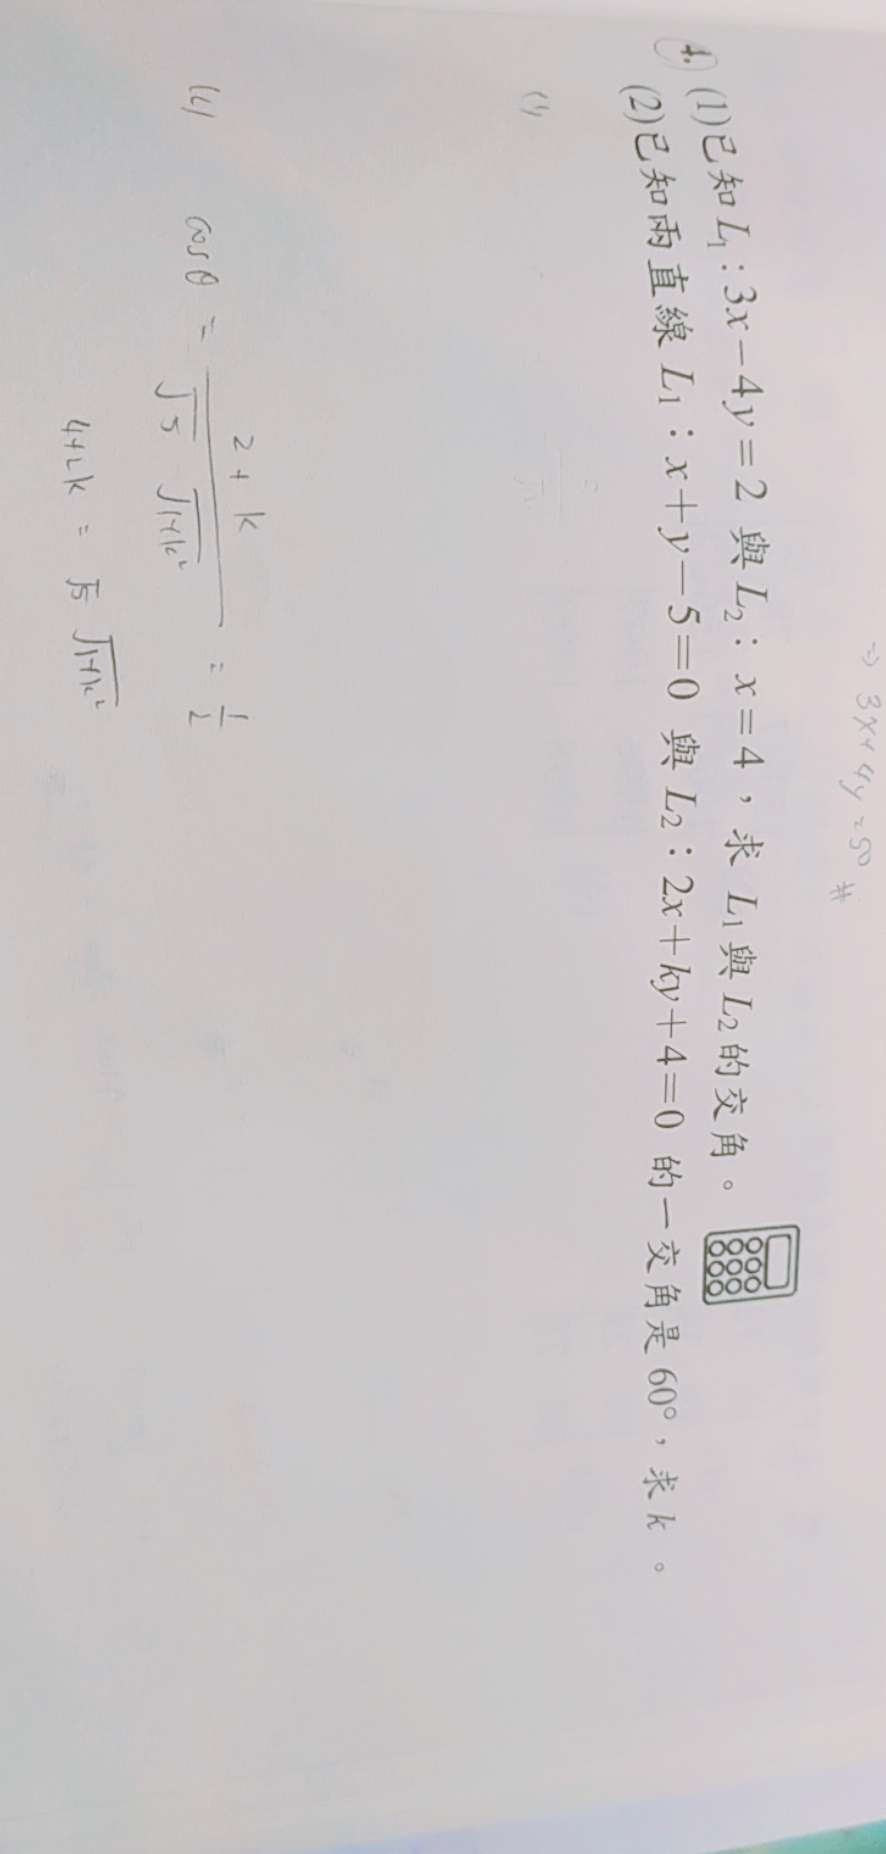 ⇒ 3x+4y=50 #
4. (1)已知 L₁:3x−4y=2 與 L₂:x=4,求 L₁ 與 L₂ 的交角。
(2)已知兩直線 L₁:x+y−5=0 與 L₂:2x+ky+4=0 的一交角是 60°,求 k。
(1)
(2) cosθ = (2+k)/(√5 √(1+k²)) = 1/2
4+2k = √5 √(1+k²)